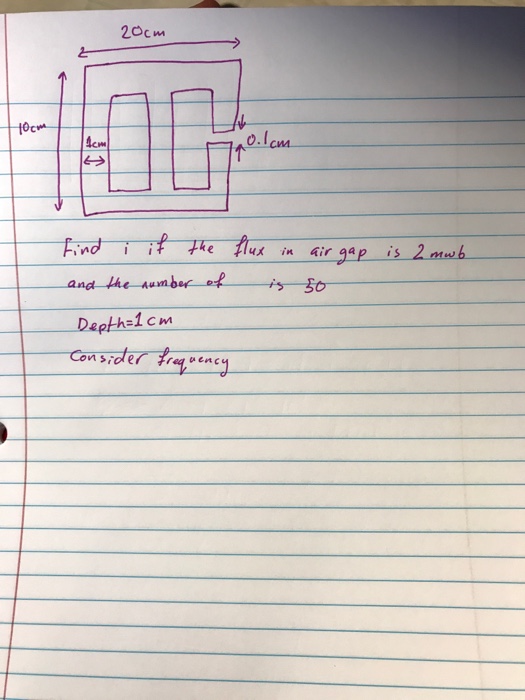 20cm
10cm
1cm
0.1cm
Find i if the flux in air gap is 2 mwb
and the number of is 50
Depth=1cm
Consider frequency